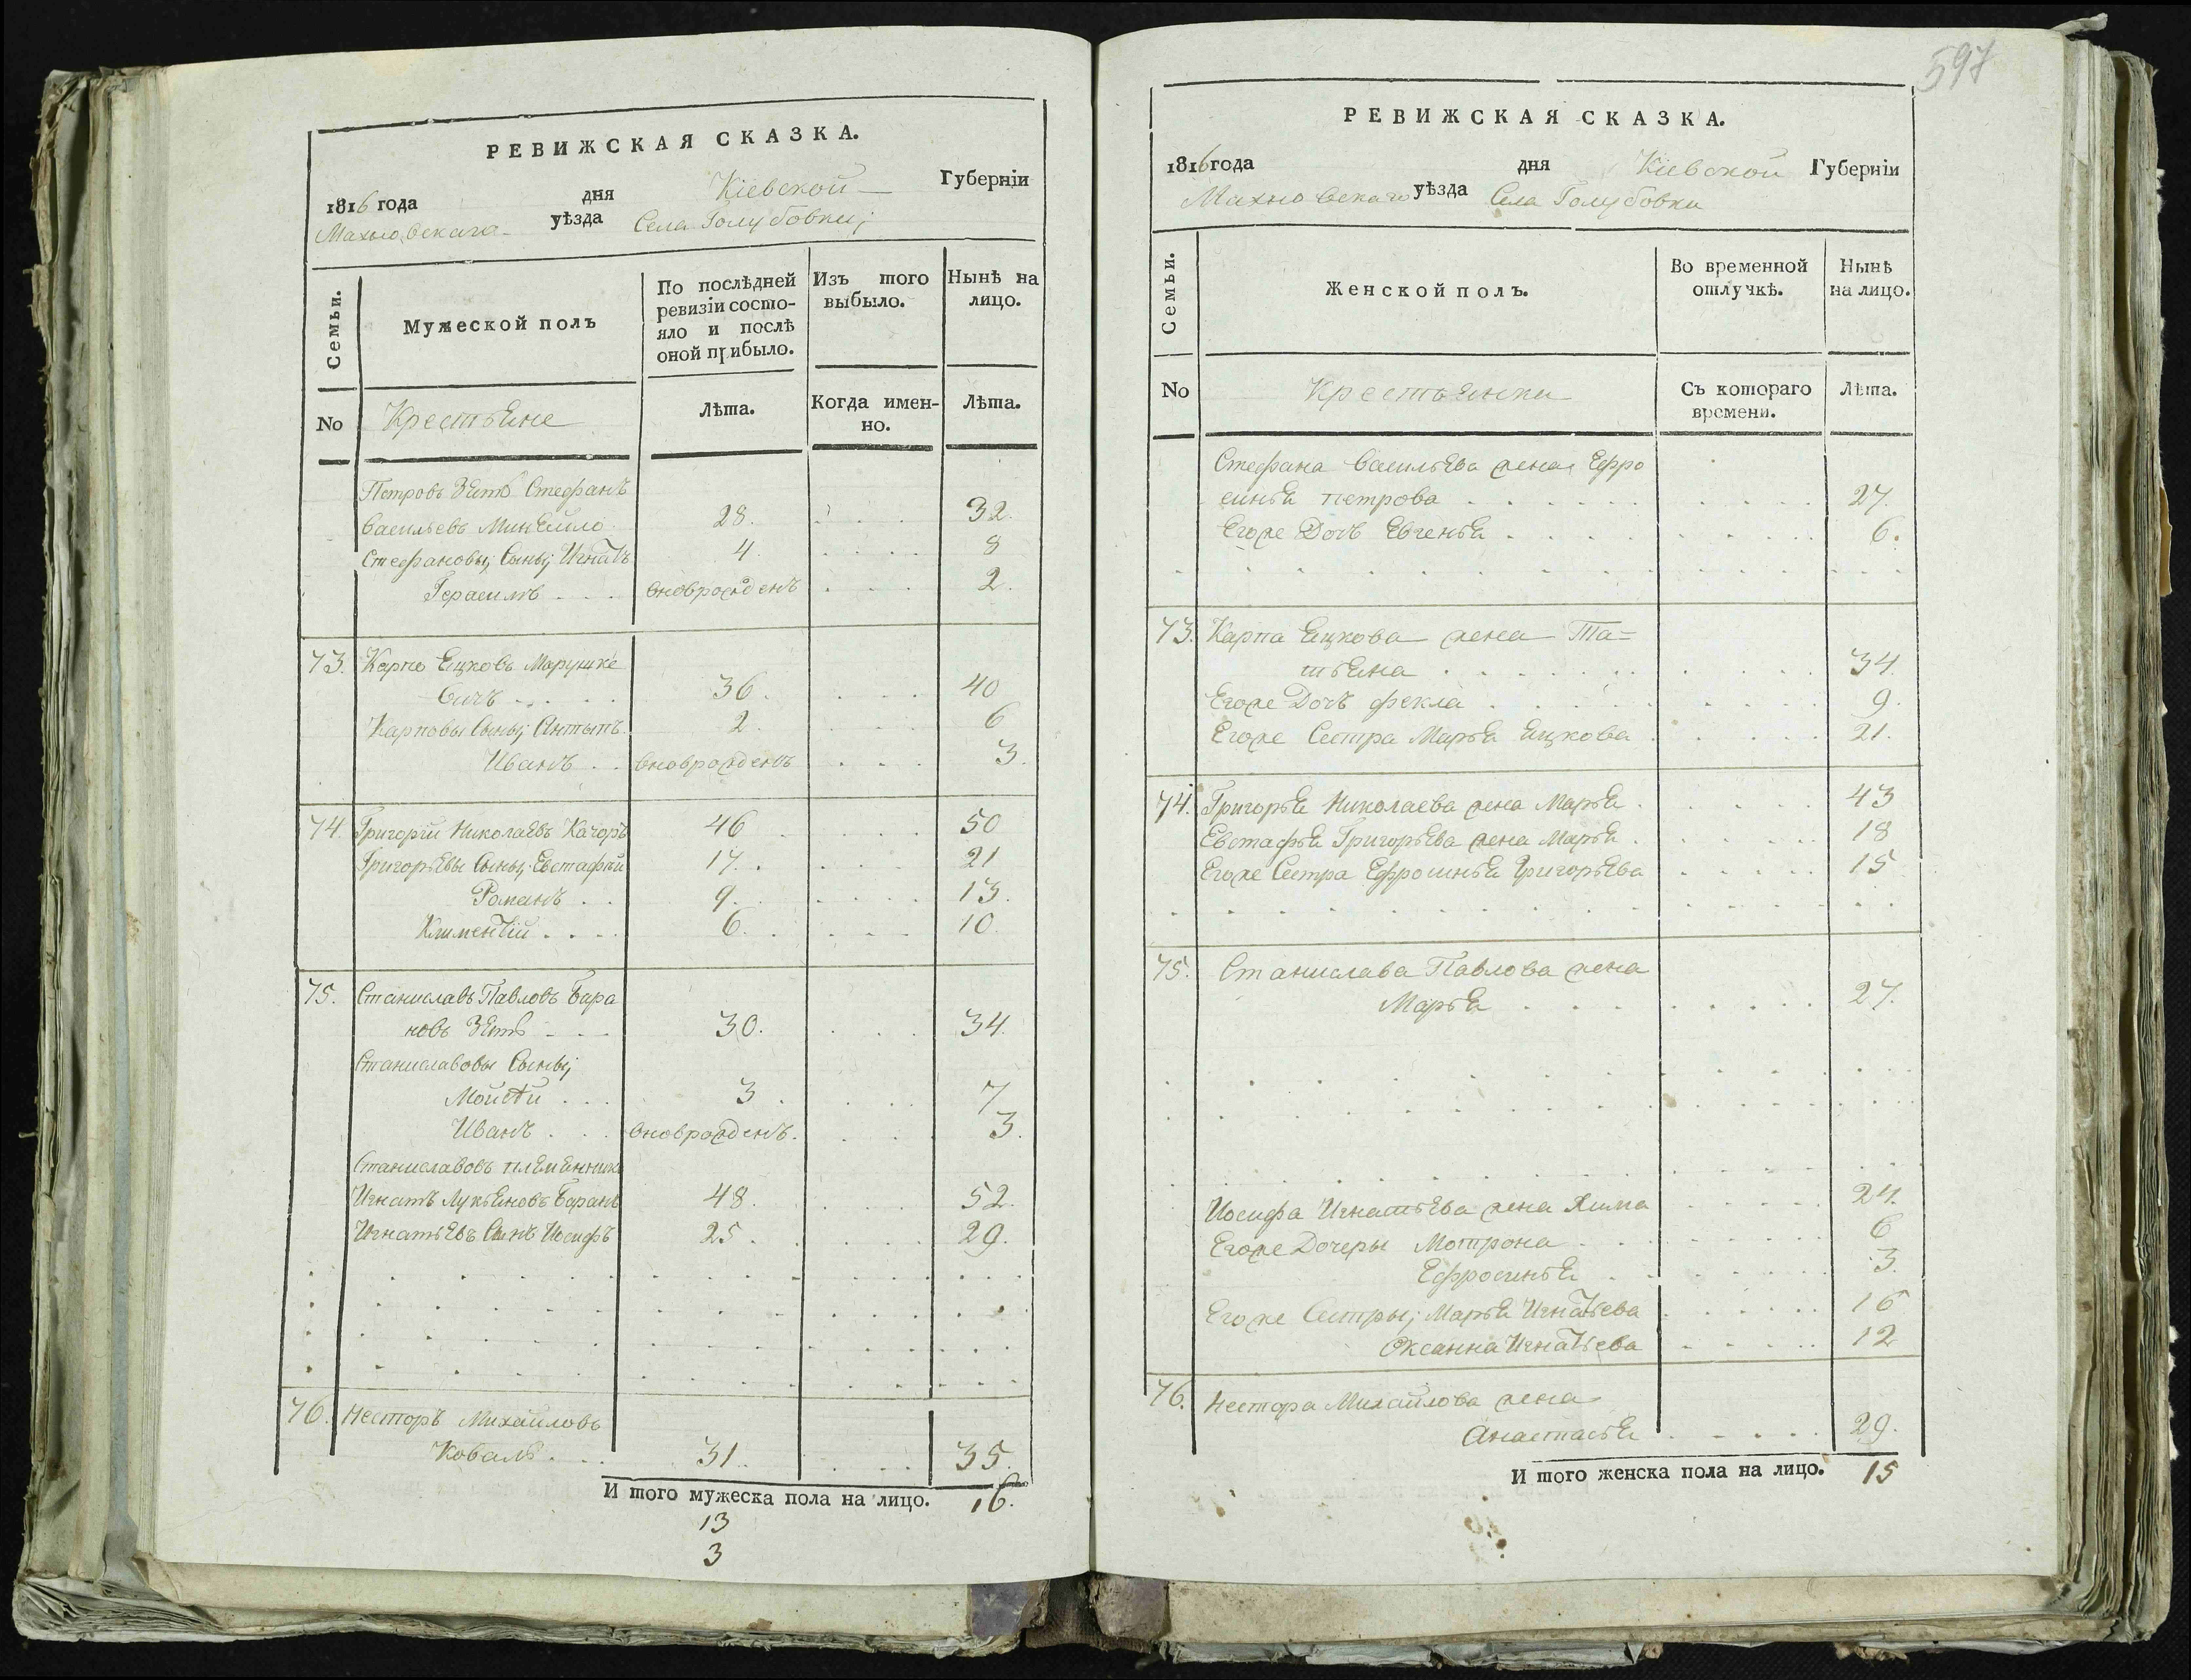 РЕВИЖСКАЯ СКАЗКА.
1816 года дня Кіевской Губерніи
Махновскага уѣзда Села Голубовки;
Семьи.
Мужеской полъ
По послѣдней
ревизіи состо-
яло и послѣ
оной прибыло.
Изъ того
выбыло.
Нынѣ на
лицо.
No
Крестьяне
Лѣта.
Когда имен-
но.
Лѣта.
Петровъ Зять Стефанъ
Васильевъ 28. 32.
Стефановы Сыны; Игнатъ 4. 8
Герасимъ вновърожденъ 2.
73. Карпо Яцковъ Марушке
вичъ 36. 40
Карповы Сыны; Антыпъ 2. 6
Иванъ вновърожденъ 3.
74. Григорій Николаевъ Качоръ 46 50
Григорьевы Сыны; Евстафій 17. 21
Романъ 9. 13.
Климентій 6. 10.
75. Станиславъ Павловъ Бара
новъ Зять 30. 34.
Станиславовы Сыны;
Мойсѣй 3. 7
Иванъ вновърожденъ. 3.
Станиславовъ племянникъ
Игнатъ Лукьяновъ Баранъ 48. 52.
Игнатьевъ Сынъ Иосифъ 25. 29.
76. Несторъ Михайловъ
Коваль 31. 35.
И того мужеска пола на лицо. 16.
13
3
597
РЕВИЖСКАЯ СКАЗКА.
1816 года дня Кіевской Губерніи
Махновскаго уѣзда Села Голубовки
Семьи.
Женской полъ.
Во временной
отлучкѣ.
Нынѣ
на лицо.
No
Крестьянки
Съ котораго
времени.
Лѣта.
Стефана Васильева жена Ефро
синья петрова 27.
Егоже Дочь Евгенья 6.
73. Карпа Яцкова жена Та=
тьяна 34.
Егоже Дочь фекла 9.
Егоже Сестра Марья Яцкова 21.
74. Григорья Николаева жена Марья 43
Евстафья Григорьева жена Марья 18
Егоже Сестра Ефросинья Григорьева 15
75. Станислава Павлова жена
Марья 27.
Иосифа Игнатьева жена Хима 24.
Егоже Дочеры Мотрона 6
Ефросинья 3.
Егоже Сестры; Марья Игнатьева 16
Оксанна Игнатьева 12
76. Нестора Михайлова жена
Анастасья 29.
И того женска пола на лицо. 15